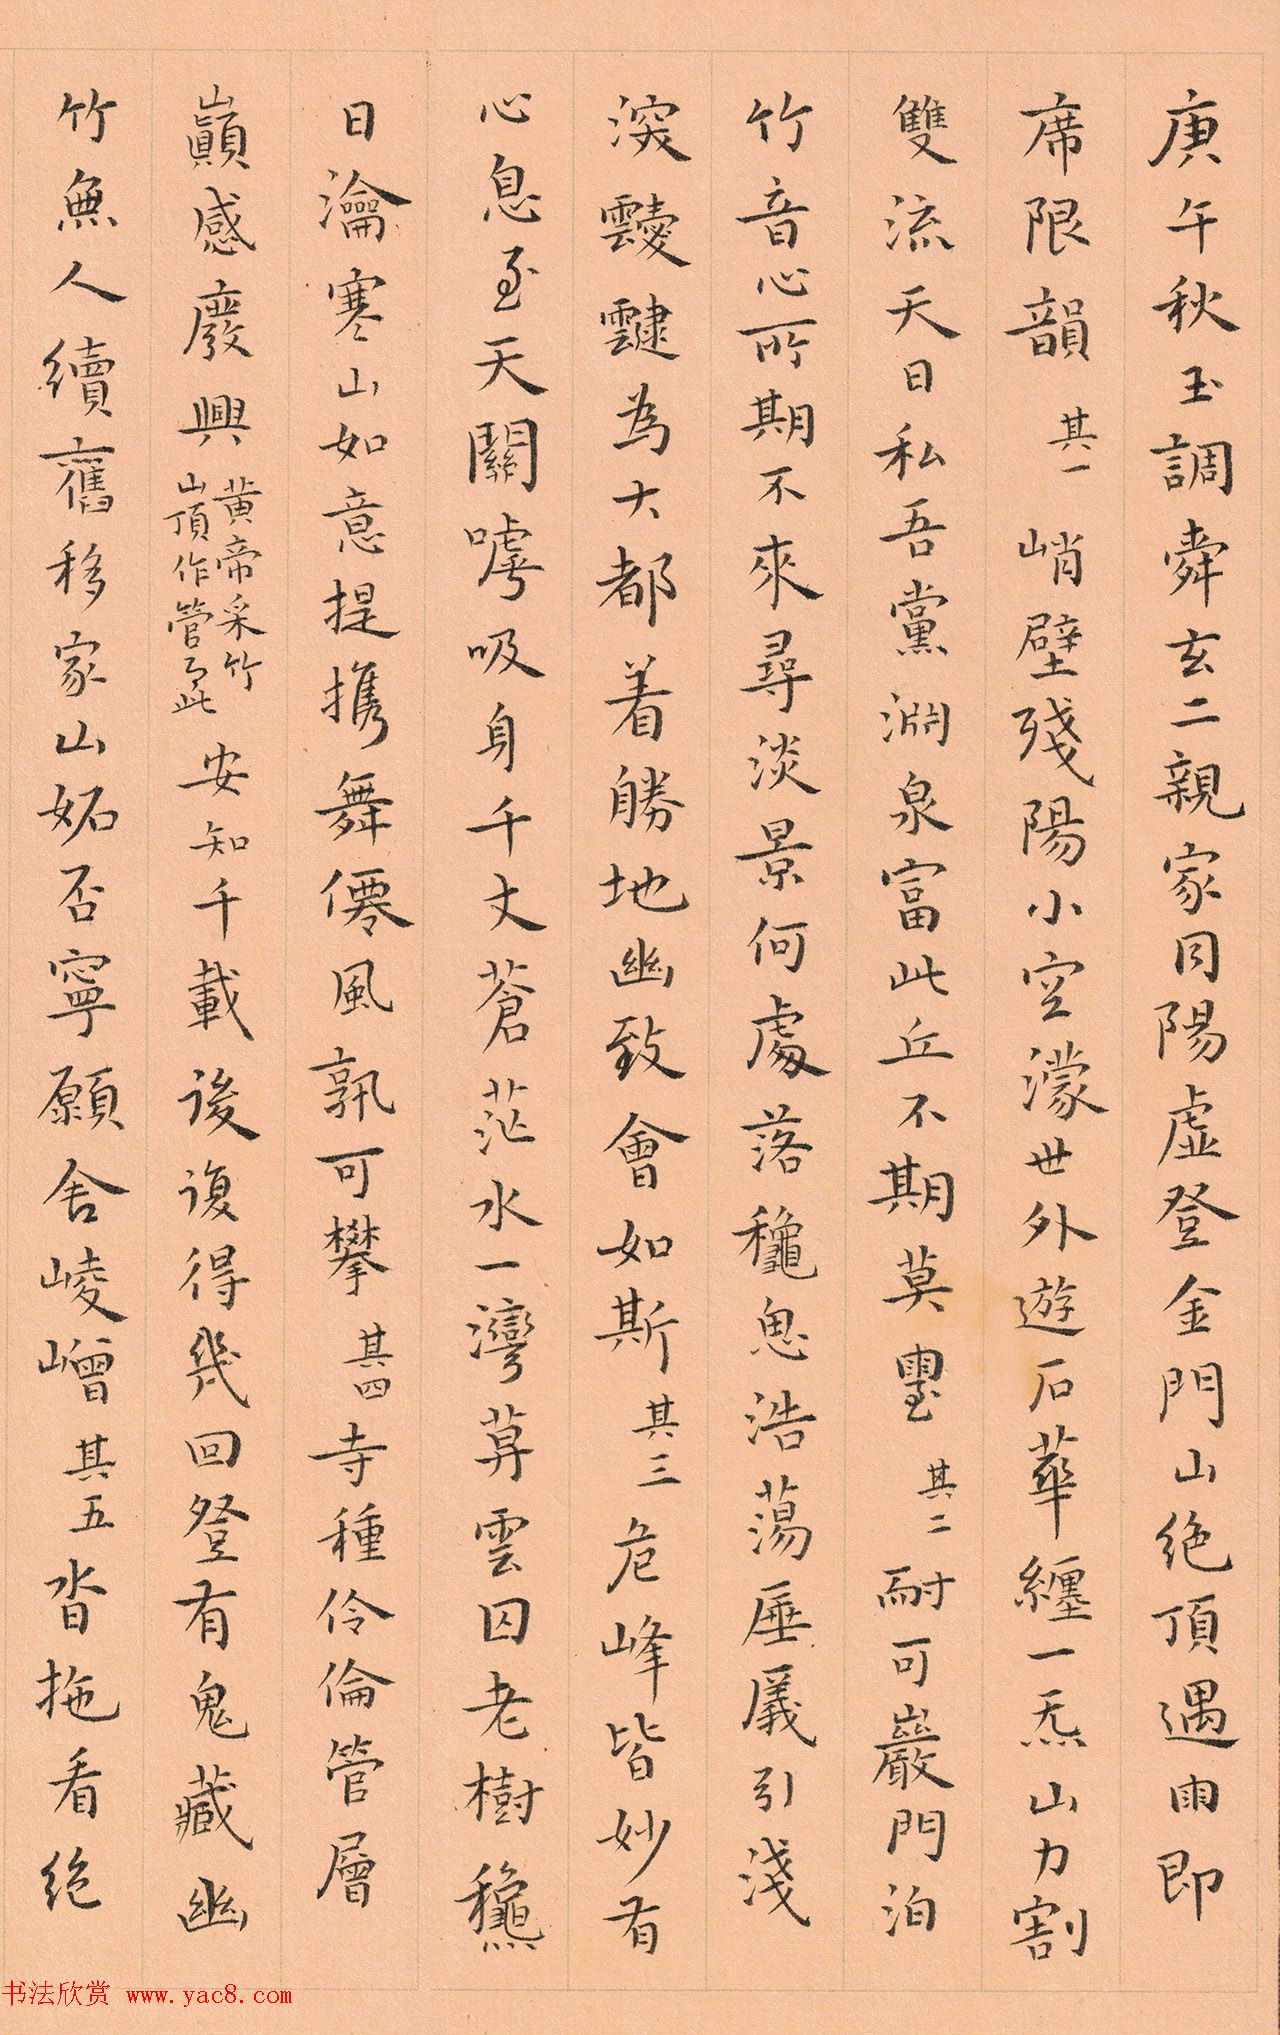 庚午秋玉調舜玄二親家同陽虛登金門山絕頂遇雨即
席限韻 其一 峭壁殘陽小空濛世外遊石華纏一炁山力割
雙流天日私吾黨淵泉富此丘不期莫璽 其二 耐可巖門泊
竹音心所期不來尋淡景何處落龝思浩蕩厜㕒引淺
深靉靆為大都着勝地幽致會如斯 其三 危峰皆妙有
心息至天關嘑吸身千丈蒼茫水一灣葬雲囚老樹龝
日瀹寒山如意提攜舞僊風孰可攀 其四 寺種伶倫管層
巔感廢興
黄帝采竹
山頂作管
安知千載後復得幾回登有鬼藏幽
竹無人續舊移家山妬否寧願舍崚嶒 其五 沓拖看絕
书法欣赏 www.yac8.com